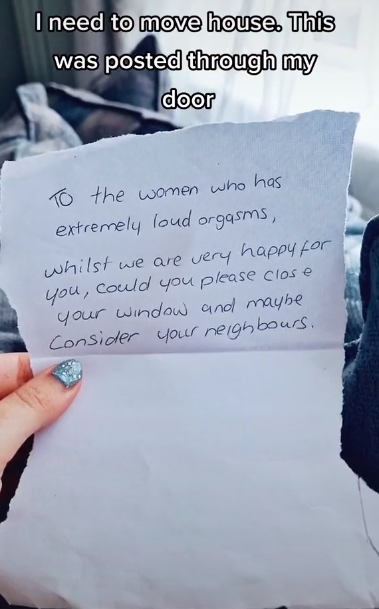 I need to move house. This
was posted through my
door
TO the women who has
extremely loud orgasms,
whilst we are very happy for
you, could you please close
your window and maybe
Consider your neighbours.